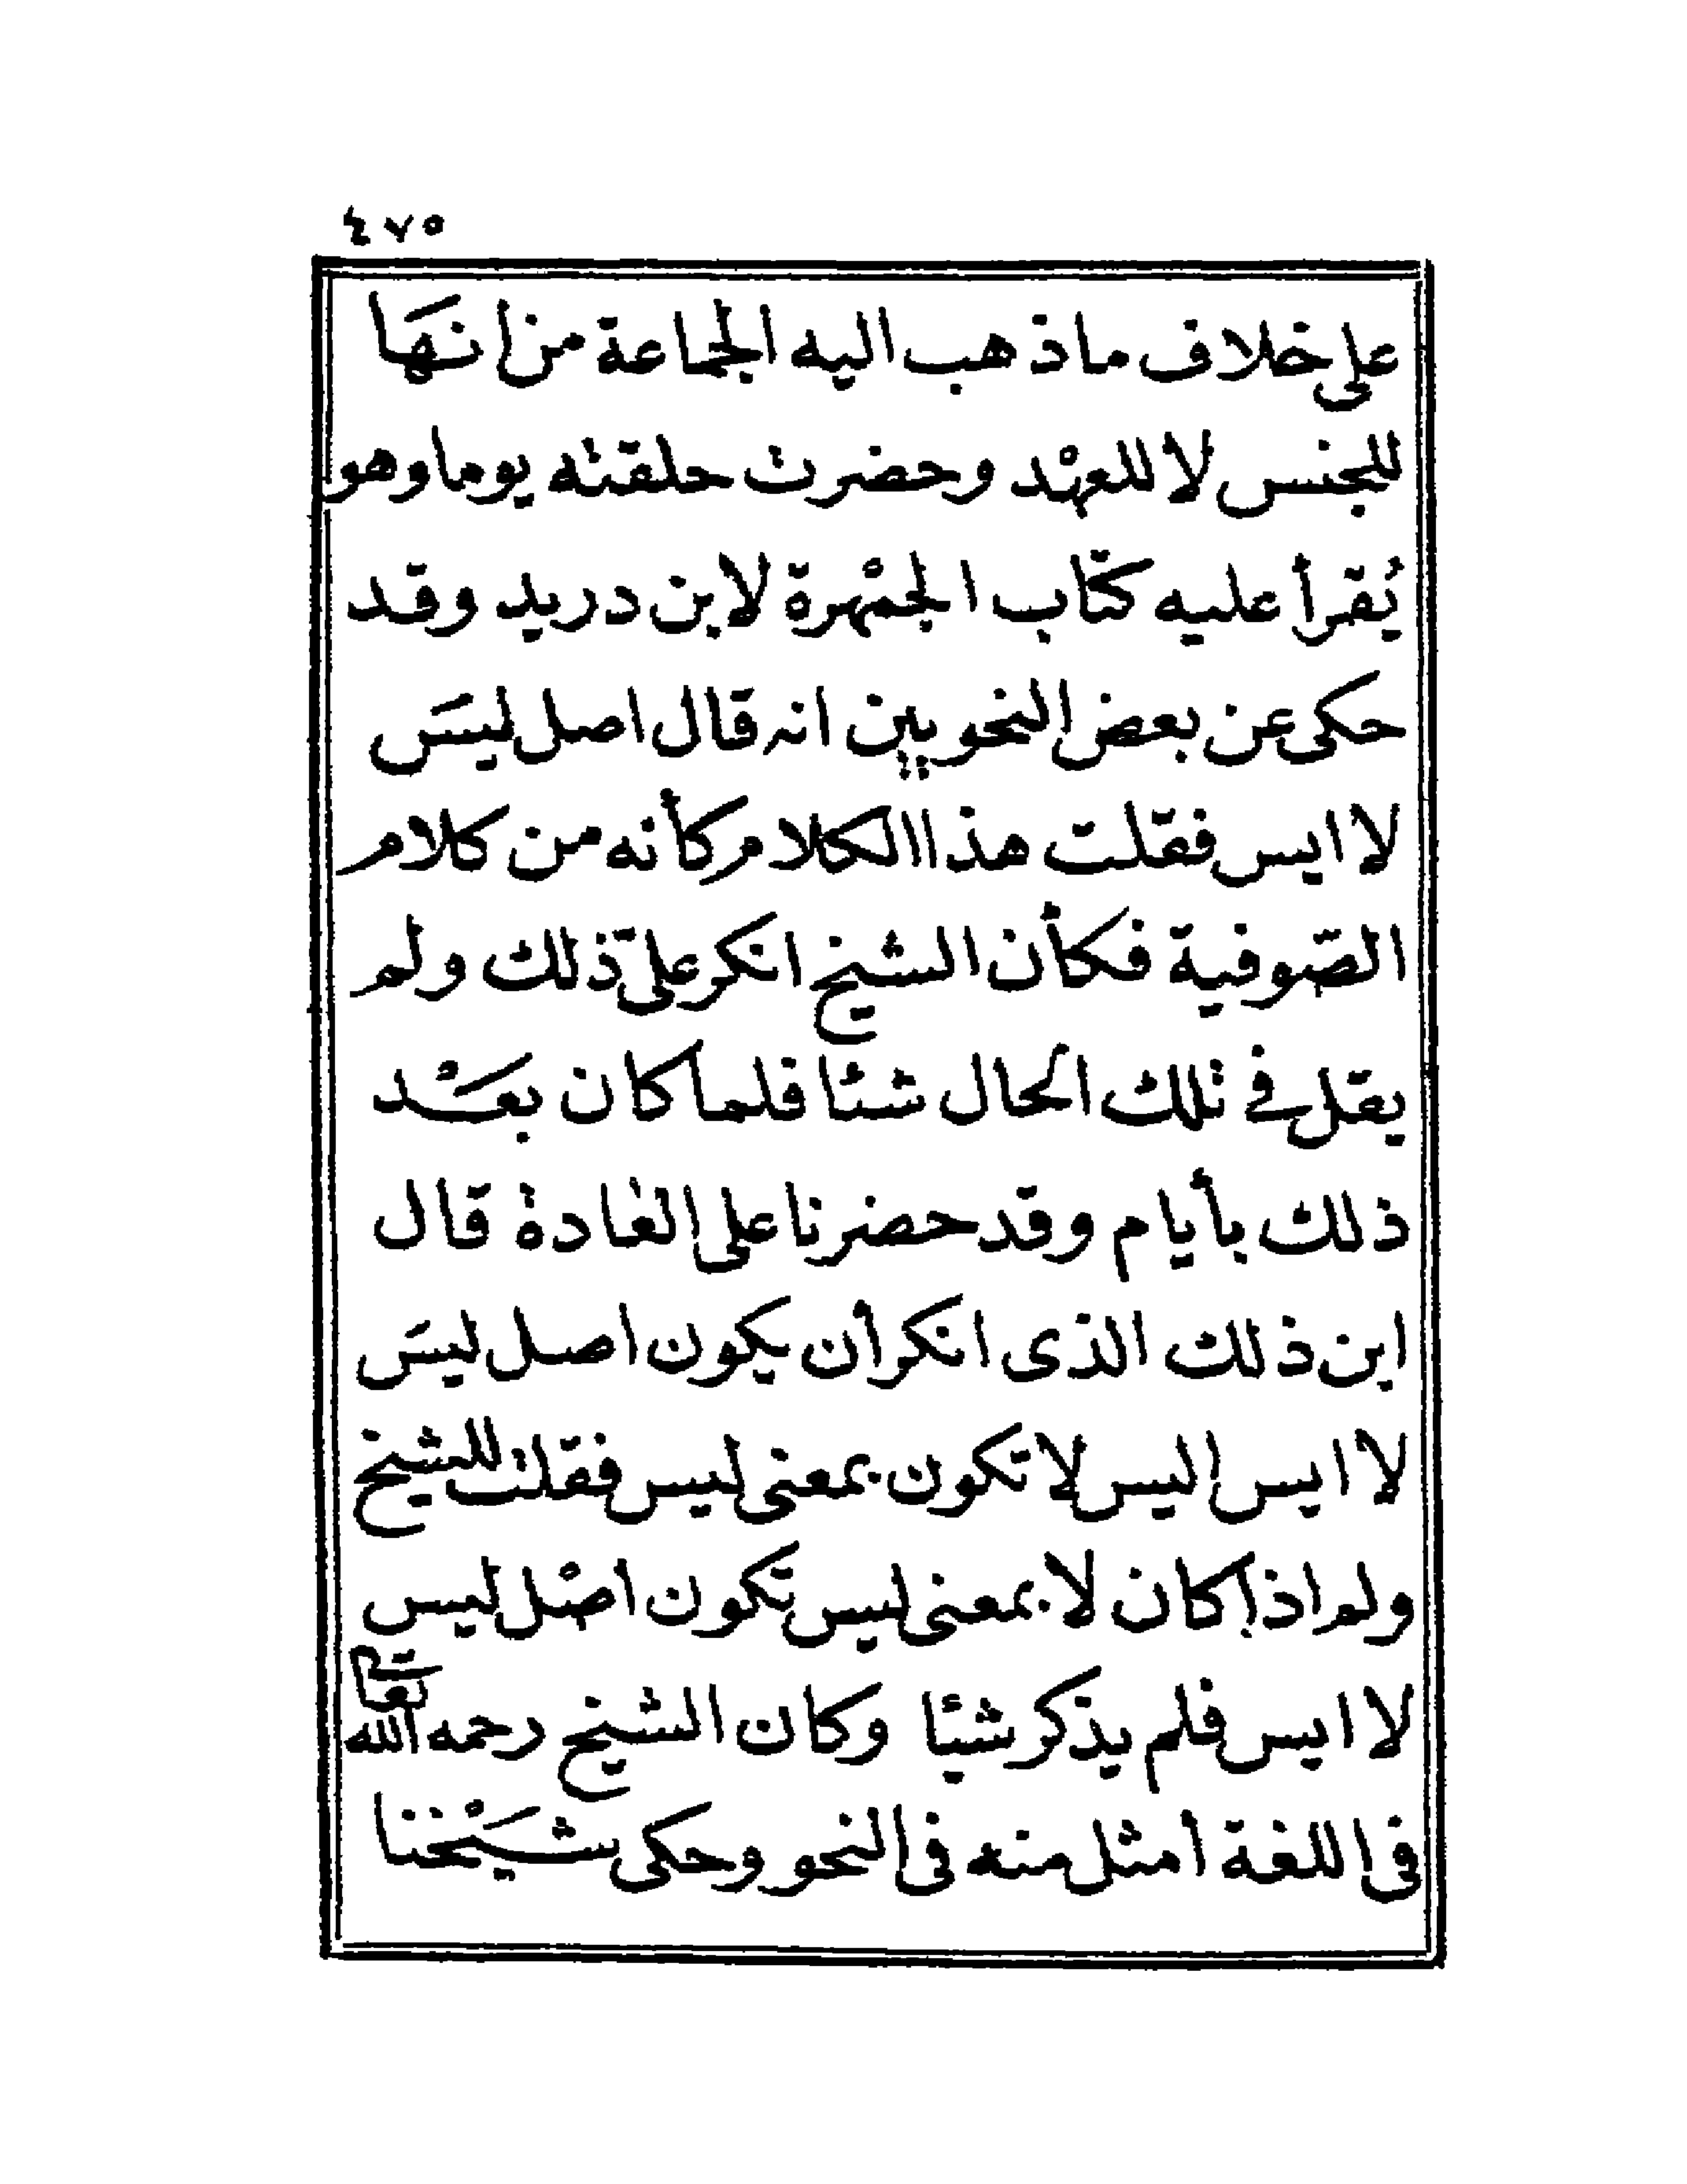 ٤٧٥
على خلاف ما ذهب اليه الجماعة من انهَا
للجنس لا للعهْد وحضرت حلقته يوما وهو
يُقرأ عليه كتاب الجمْهرة لابن دريد وقد
حكى عن بعض النحويين انه قال اصل ليسَ
لا ايس فقلت هذا الكلام كأنه من كلام
الصّوفية فكأن الشيخ انكر علىّ ذلك ولم
يقل في تلك الحال شئا فلما كان بعَـْد
ذلك بأيام وقد حضرنا على العادة قال
اين ذلك الذى انكر أن يكون اصل ليسَ
لا ايس اليس لا تكون بمعنى ليس فقلت للشيخ
ولم اذا كان لا بمعنى ليس تكون اصْل ليس
لا ايس فلم يذكر شيئا وكان الشيخ رحمه الله تعالى
فى اللغة أمثل منه فى النحو وحكى شَيْخنا